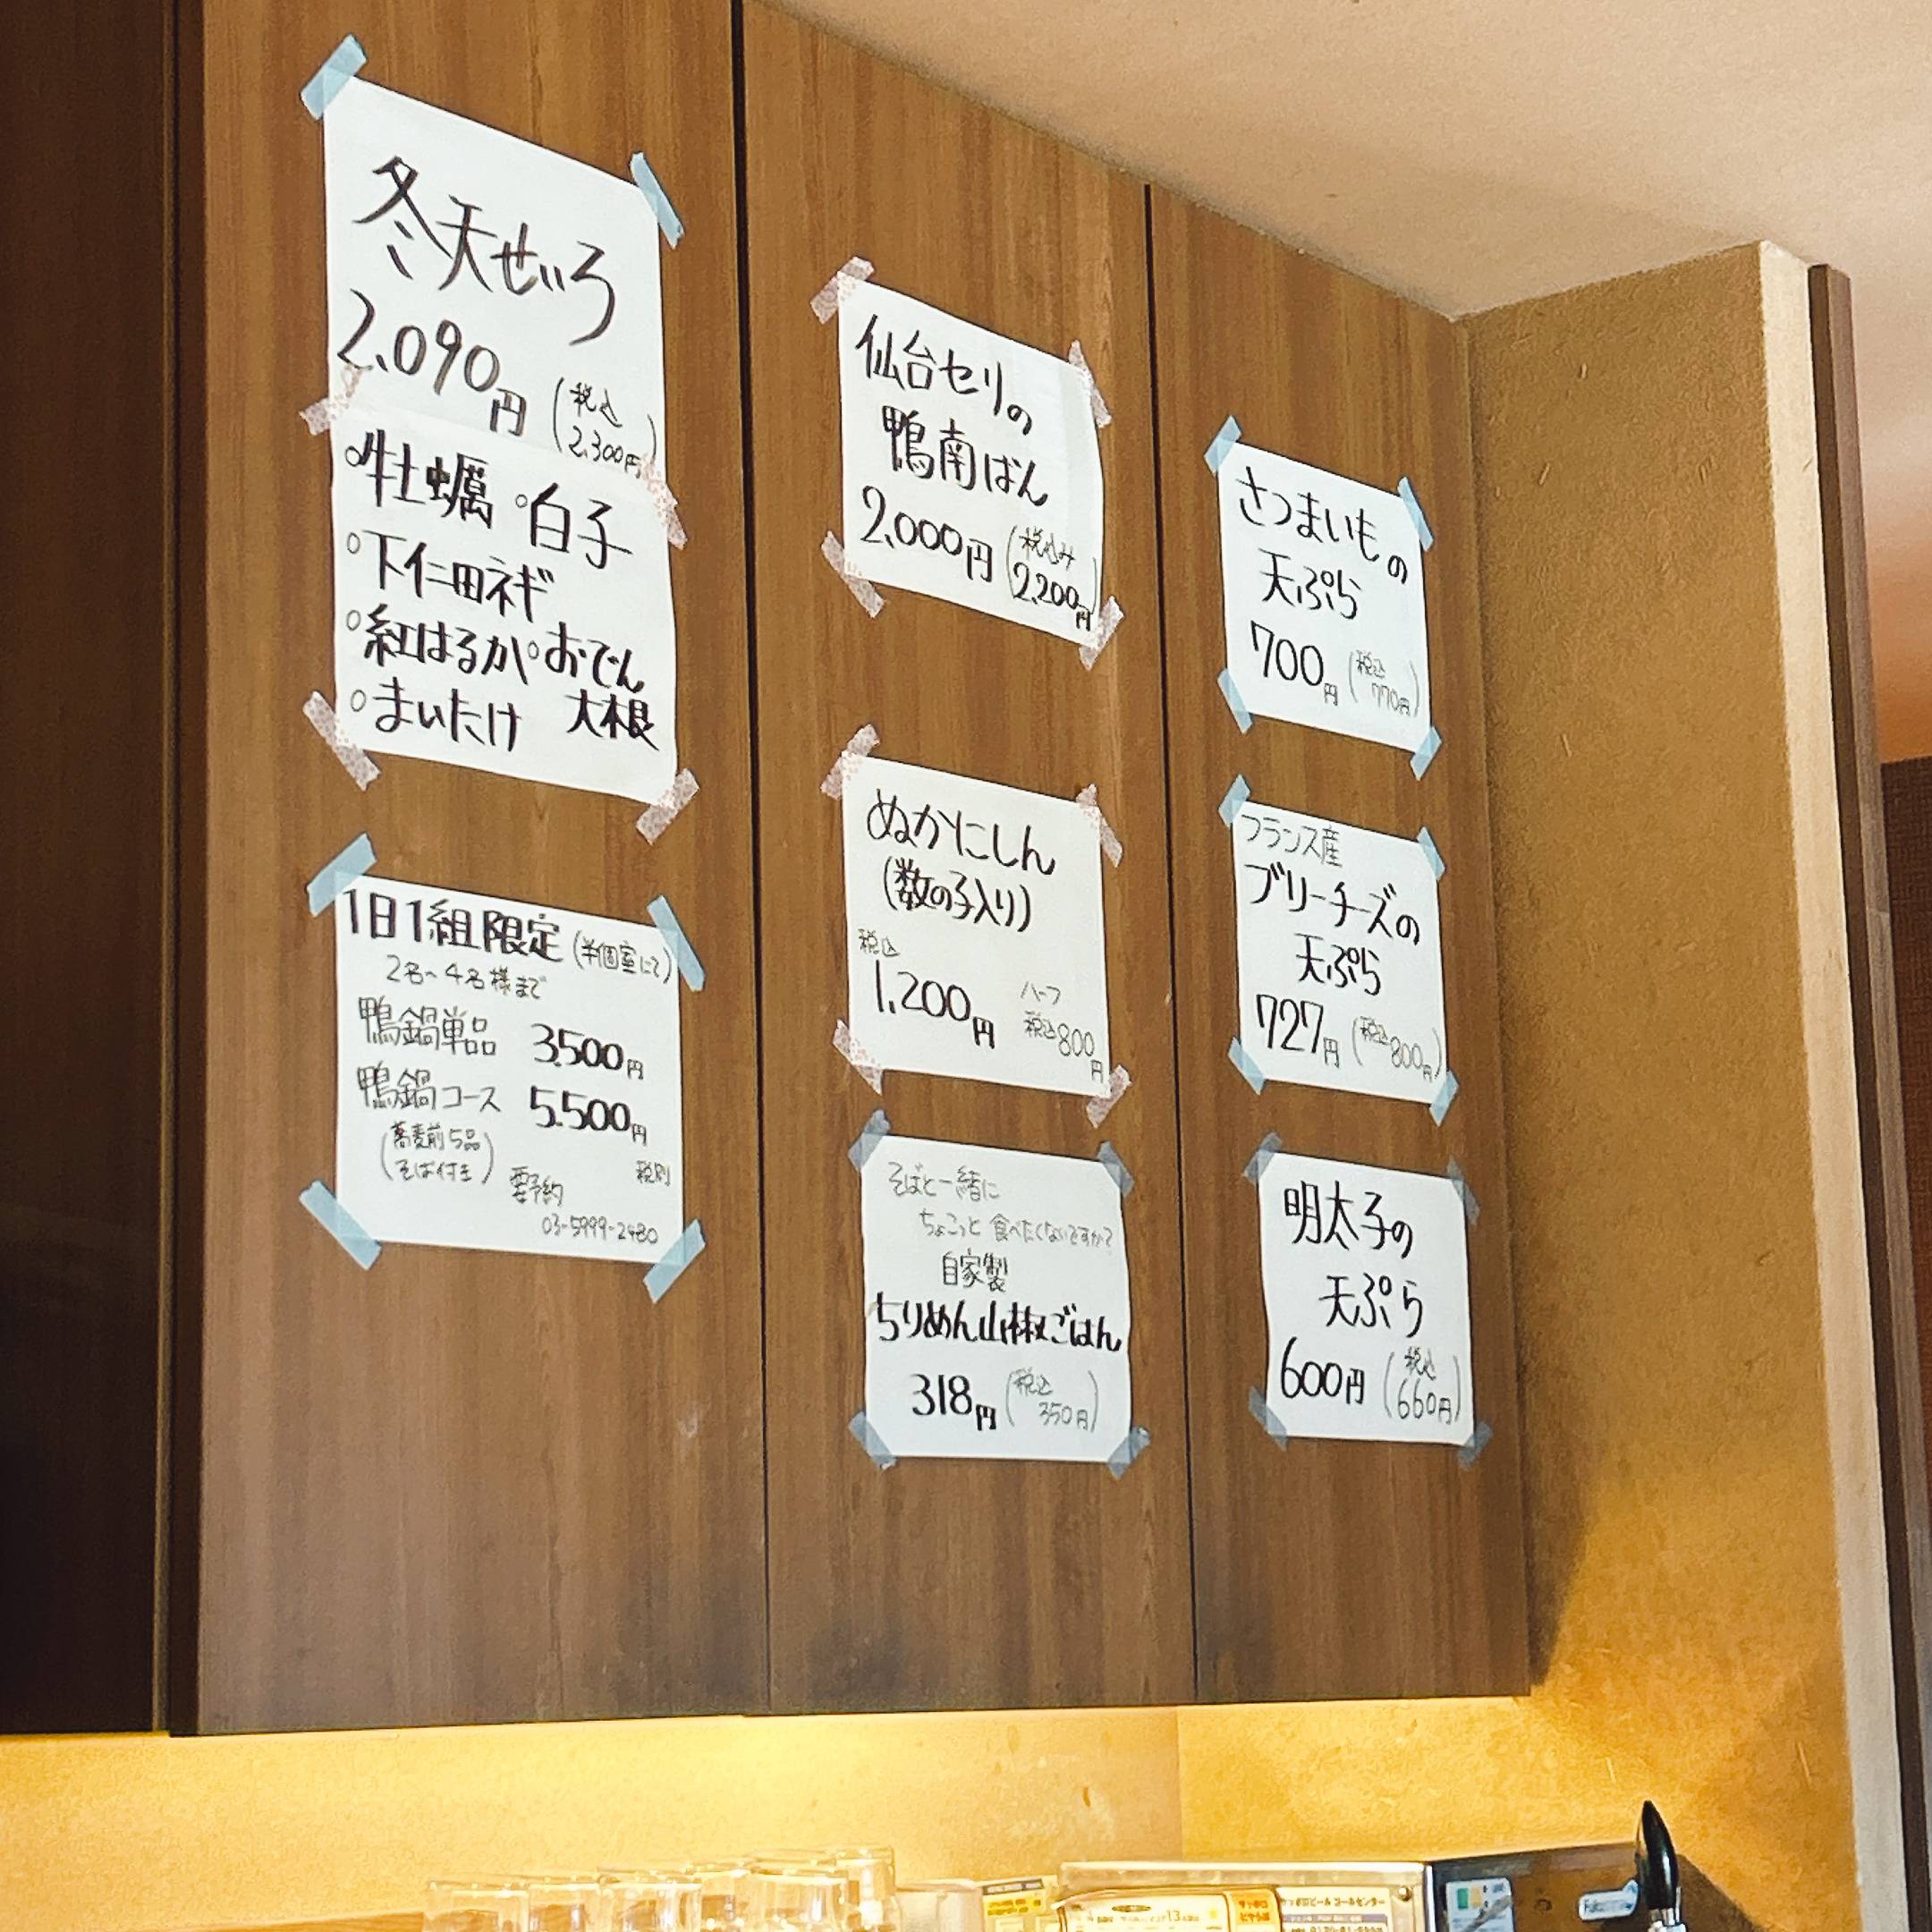 冬天せいろ
2,090円 (税込 2,300円)
○牡蠣 ○白子
○下仁田ネギ
○紅はるか ○おでん
○まいたけ 大根
1日1組限定 (半個室にて)
2名〜4名様まで
鴨鍋単品 3,500円
鴨鍋コース 5,500円
(蕎麦前5品 そば付き) 要予約 税別
03-5999-2480
仙台セリの
鴨南ばん
2,000円 (税込み 2,200円)
ぬかにしん
(数の子入り)
税込
1,200円 ハーフ 税込800円
そばと一緒に
ちょこっと食べたくないですか?
自家製
ちりめん山椒ごはん
318円 (税込 350円)
さつまいもの
天ぷら
700円 (税込 770円)
フランス産
ブリーチーズの
天ぷら
727円 (税込800円)
明太子の
天ぷら
600円 (税込 660円)